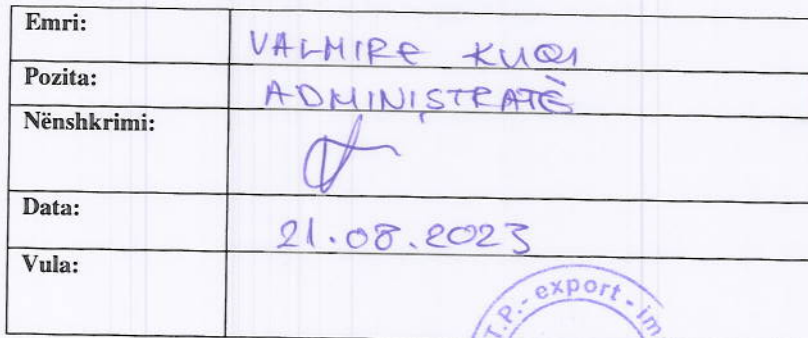 Emri: VALMIRE KUQI
Pozita: ADMINISTRATË
Nënshkrimi:
Data: 21.08.2023
Vula:
T.P.- export - im